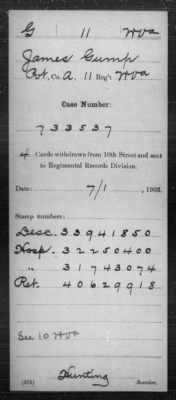 G 11 WVa
James Gump
Pvt., Co. A. 11 Reg't WVa
Case Number:
733537
Cards withdrawn from 10th Street and sent
to Regimental Records Division.
Date: 7/1, 1903.
Stamp numbers:
Desc. 33941850
Hosp. 32250400
" 31743074
Ret. 40629918
See 10 WVa
Hunting
(272) Searcher.